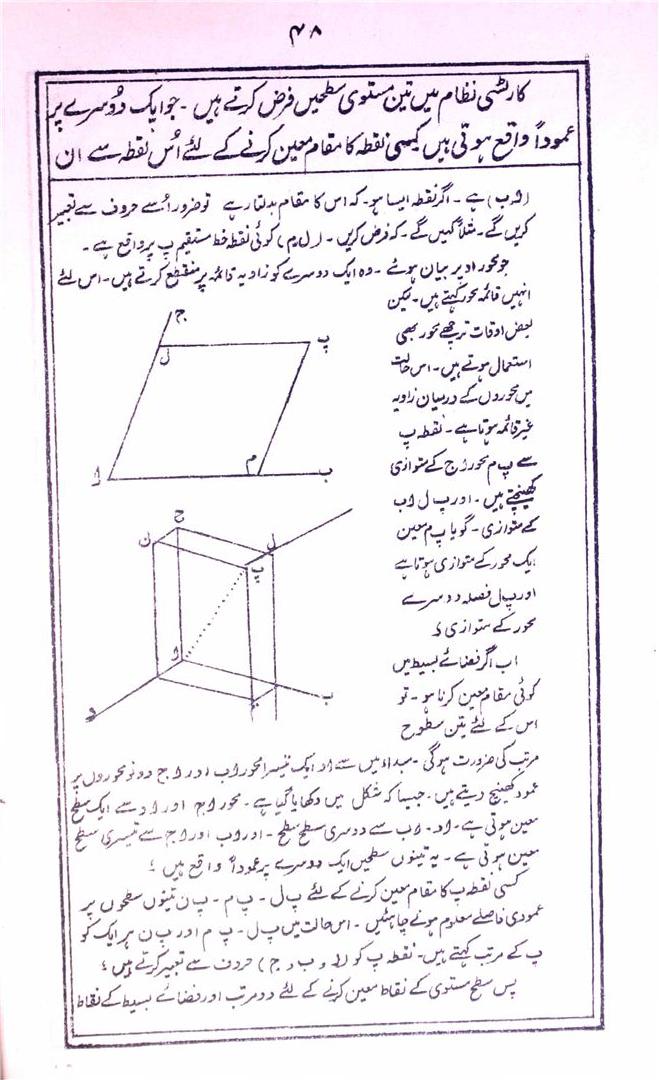 ۴۸
کارٹسی نظام میں تین مستوی سطحیں فرض کرتے ہیں ۔ جو ایک دُوسرے پر
عموداً واقع ہوتی ہیں کیسی نقطہ کا مقام معین کرنے کے لئے اُس نقطہ سے ان
ہے ۔ اگر نقطہ ایسا ہو ۔ کہ اس کا مقام بدلتا رہے تو ضرور اُسے حروف سے تعبیر
کریں گے ۔ مثلاً کہیں گے ۔ کہ فرض کریں ۔ (ل م) کوئی نقطہ خط مستقیم پ پر واقع ہے ۔
جو محور اوپر بیان ہوئے ۔ وہ ایک دوسرے کو زاویہ قائمہ پر منقطع کرتے ہیں ۔ اس لئے
انہیں قائمہ محور کہتے ہیں ۔ لیکن
بعض اوقات ترچھے محور بھی
استعمال ہوتے ہیں ۔ اس حالت
میں محوروں کے درمیان زاویہ
غیر قائمہ ہوتا ہے ۔ نقطہ پ
سے پ م محور ا ج کے متوازی
کھینچتے ہیں ۔ اور پ ل ا ب
کے متوازی ۔ گویا پ م معین
ایک محور کے متوازی ہوتا ہے
اور پ ل فصلہ دوسرے
محور کے متوازی ؛
اب اگر فضائے بسیط میں
کوئی مقام معین کرنا ہو ۔ تو
اس کے لئے تین سطوح
مرتب کی ضرورت ہوگی ۔ مبداء میں سے ا د ایک تیسرا محور ا ب اور ا ج دونو محوروں پر
عمود کھینچ دیتے ہیں ۔ جیسا کہ شکل میں دکھایا گیا ہے ۔ محور ا ج اور ا د سے ایک سطح
معین ہوتی ہے ۔ ا د ۔ ا ب سے دوسری سطح سطح ۔ اور ا ب اور ا ج سے تیسری سطح
معین ہوتی ہے ۔ یہ تینوں سطحیں ایک دوسرے پر عموداً واقع ہیں ؛
کسی نقطہ پ کا مقام معین کرنے کے لئے پ ل ۔ پ م ۔ پ ن تینوں سطحوں پر
عمودی فاصلے معلوم ہونے چاہئیں ۔ اس حالت میں پ ل ۔ پ م اور پ ن ہر ایک کو
پ کے مرتب کہتے ہیں ۔ نقطہ پ کو حروف سے تعبیر کرتے ہیں ؛
پس سطح مستوی کے نقاط معین کرنے کے لئے دو مرتب اور فضائے بسیط کے نقاط
ج
ل
پ
ا
م
ب
ج
ن
ل
پ
ا
ب
م
د